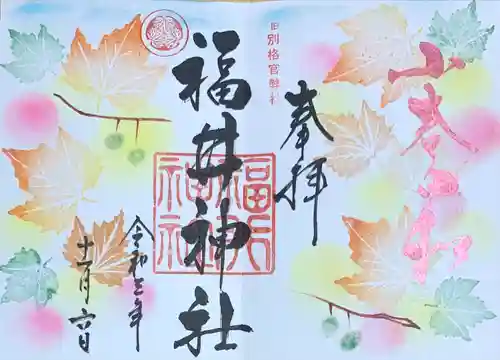 旧別格官幣社
奉拝
福井神社
福井
神社
令和三年
十一月六日